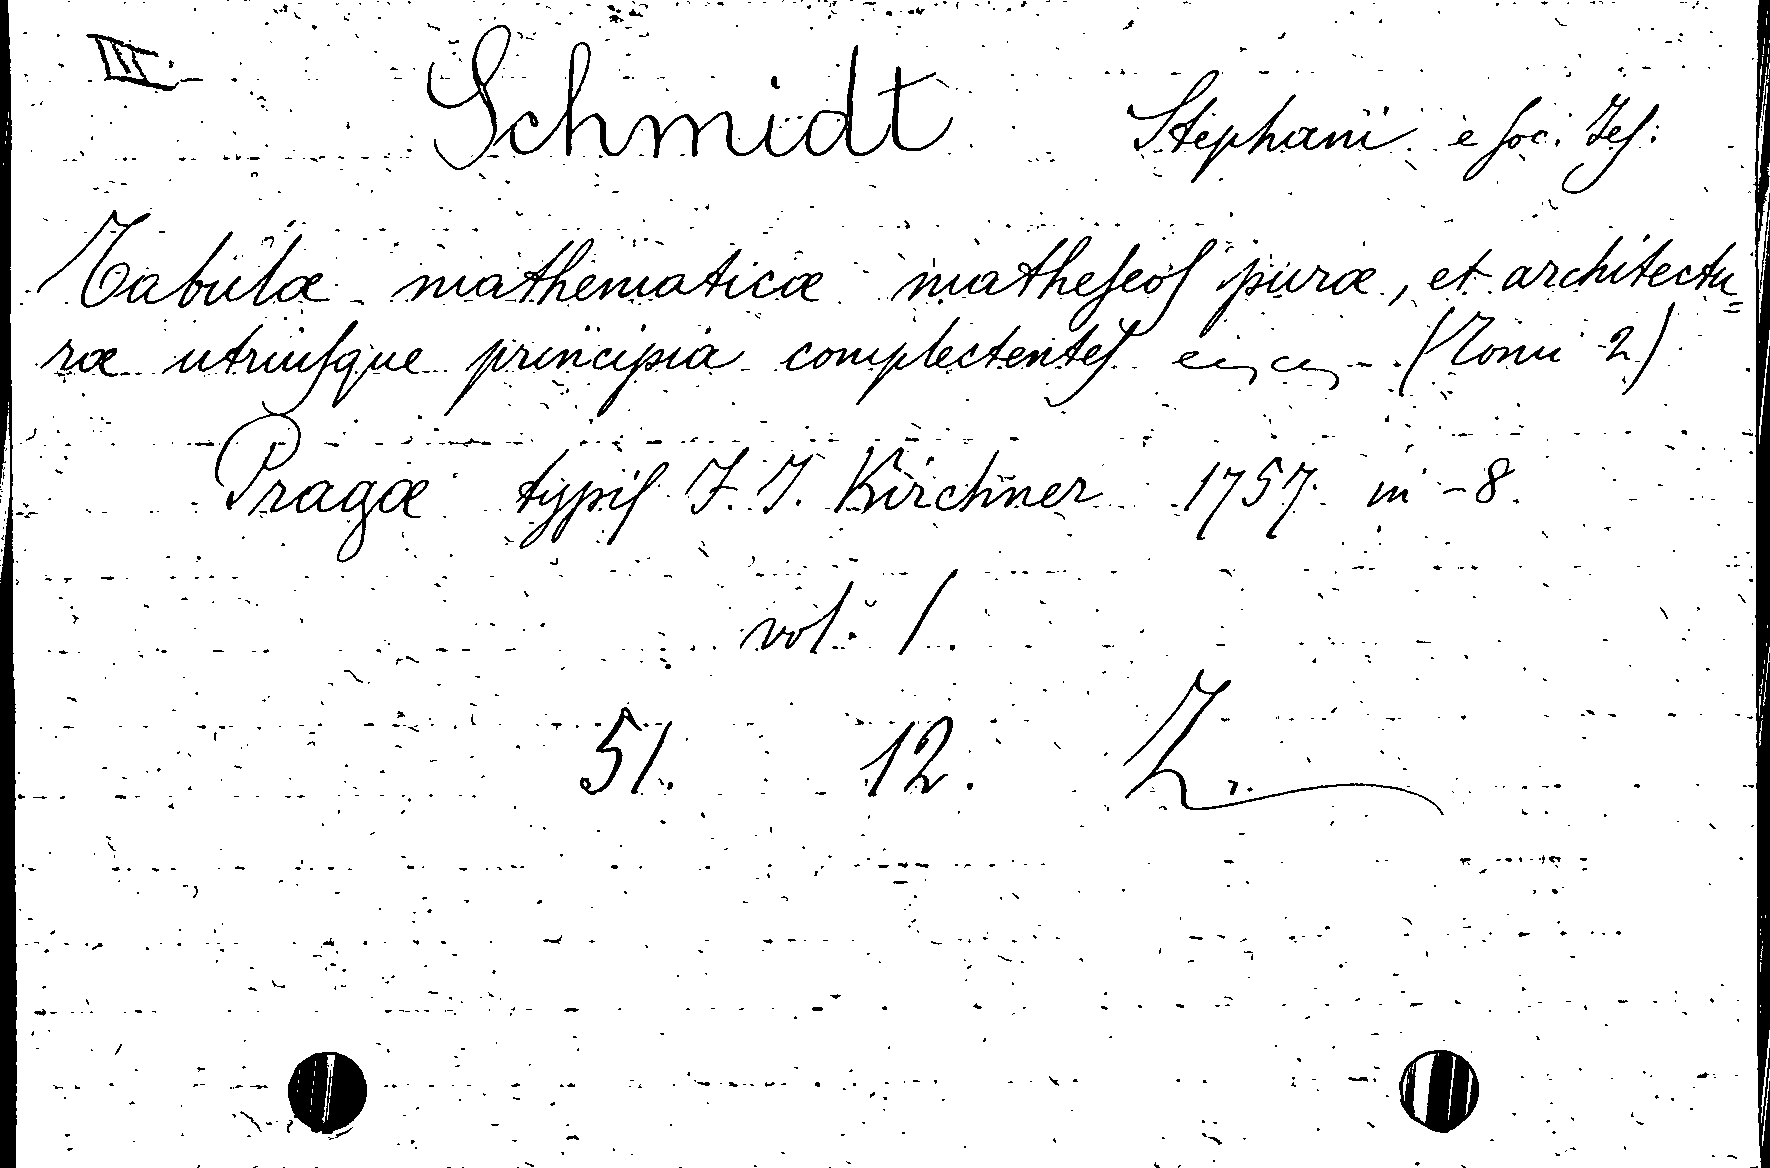 III.
Schmidt Stephani e Soc. Jes:
Tabulæ mathematicæ matheseos puræ, et architectu=
ræ utriusque principia complectentes (Tomi 2)
Pragæ typis J. J. Kirchner 1757 in -8.
vol. 1.
51. 12.